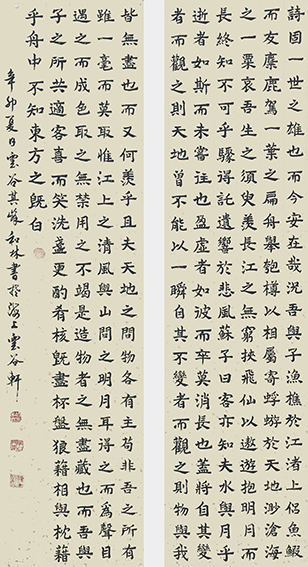 詩固一世之雄也而今安在哉況吾與子漁樵於江渚上侶魚鰕
而友麋鹿駕一葉之扁舟舉匏樽以相屬寄蜉蝣於天地渺滄海
之一粟哀吾生之須臾羨長江之無窮挾飛仙以遨遊抱明月而
長終知不可乎驟得託遺響於悲風蘇子曰客亦知夫水與月乎
逝者如斯而未嘗往也盈虛者如彼而卒莫消長也蓋將自其變
者而觀之則天地曾不能以一瞬自其不變者而觀之則物與我
皆無盡也而又何羨乎且夫天地之間物各有主苟非吾之所有
雖一毫而莫取惟江上之清風與山間之明月耳得之而為聲目
遇之而成色取之無禁用之不竭是造物者之無盡藏也而吾與
子之所共適客喜而笑洗盞更酌肴核既盡杯盤狼藉相與枕藉
乎舟中不知東方之既白
辛卯夏月雲谷和林書於海上雲谷軒